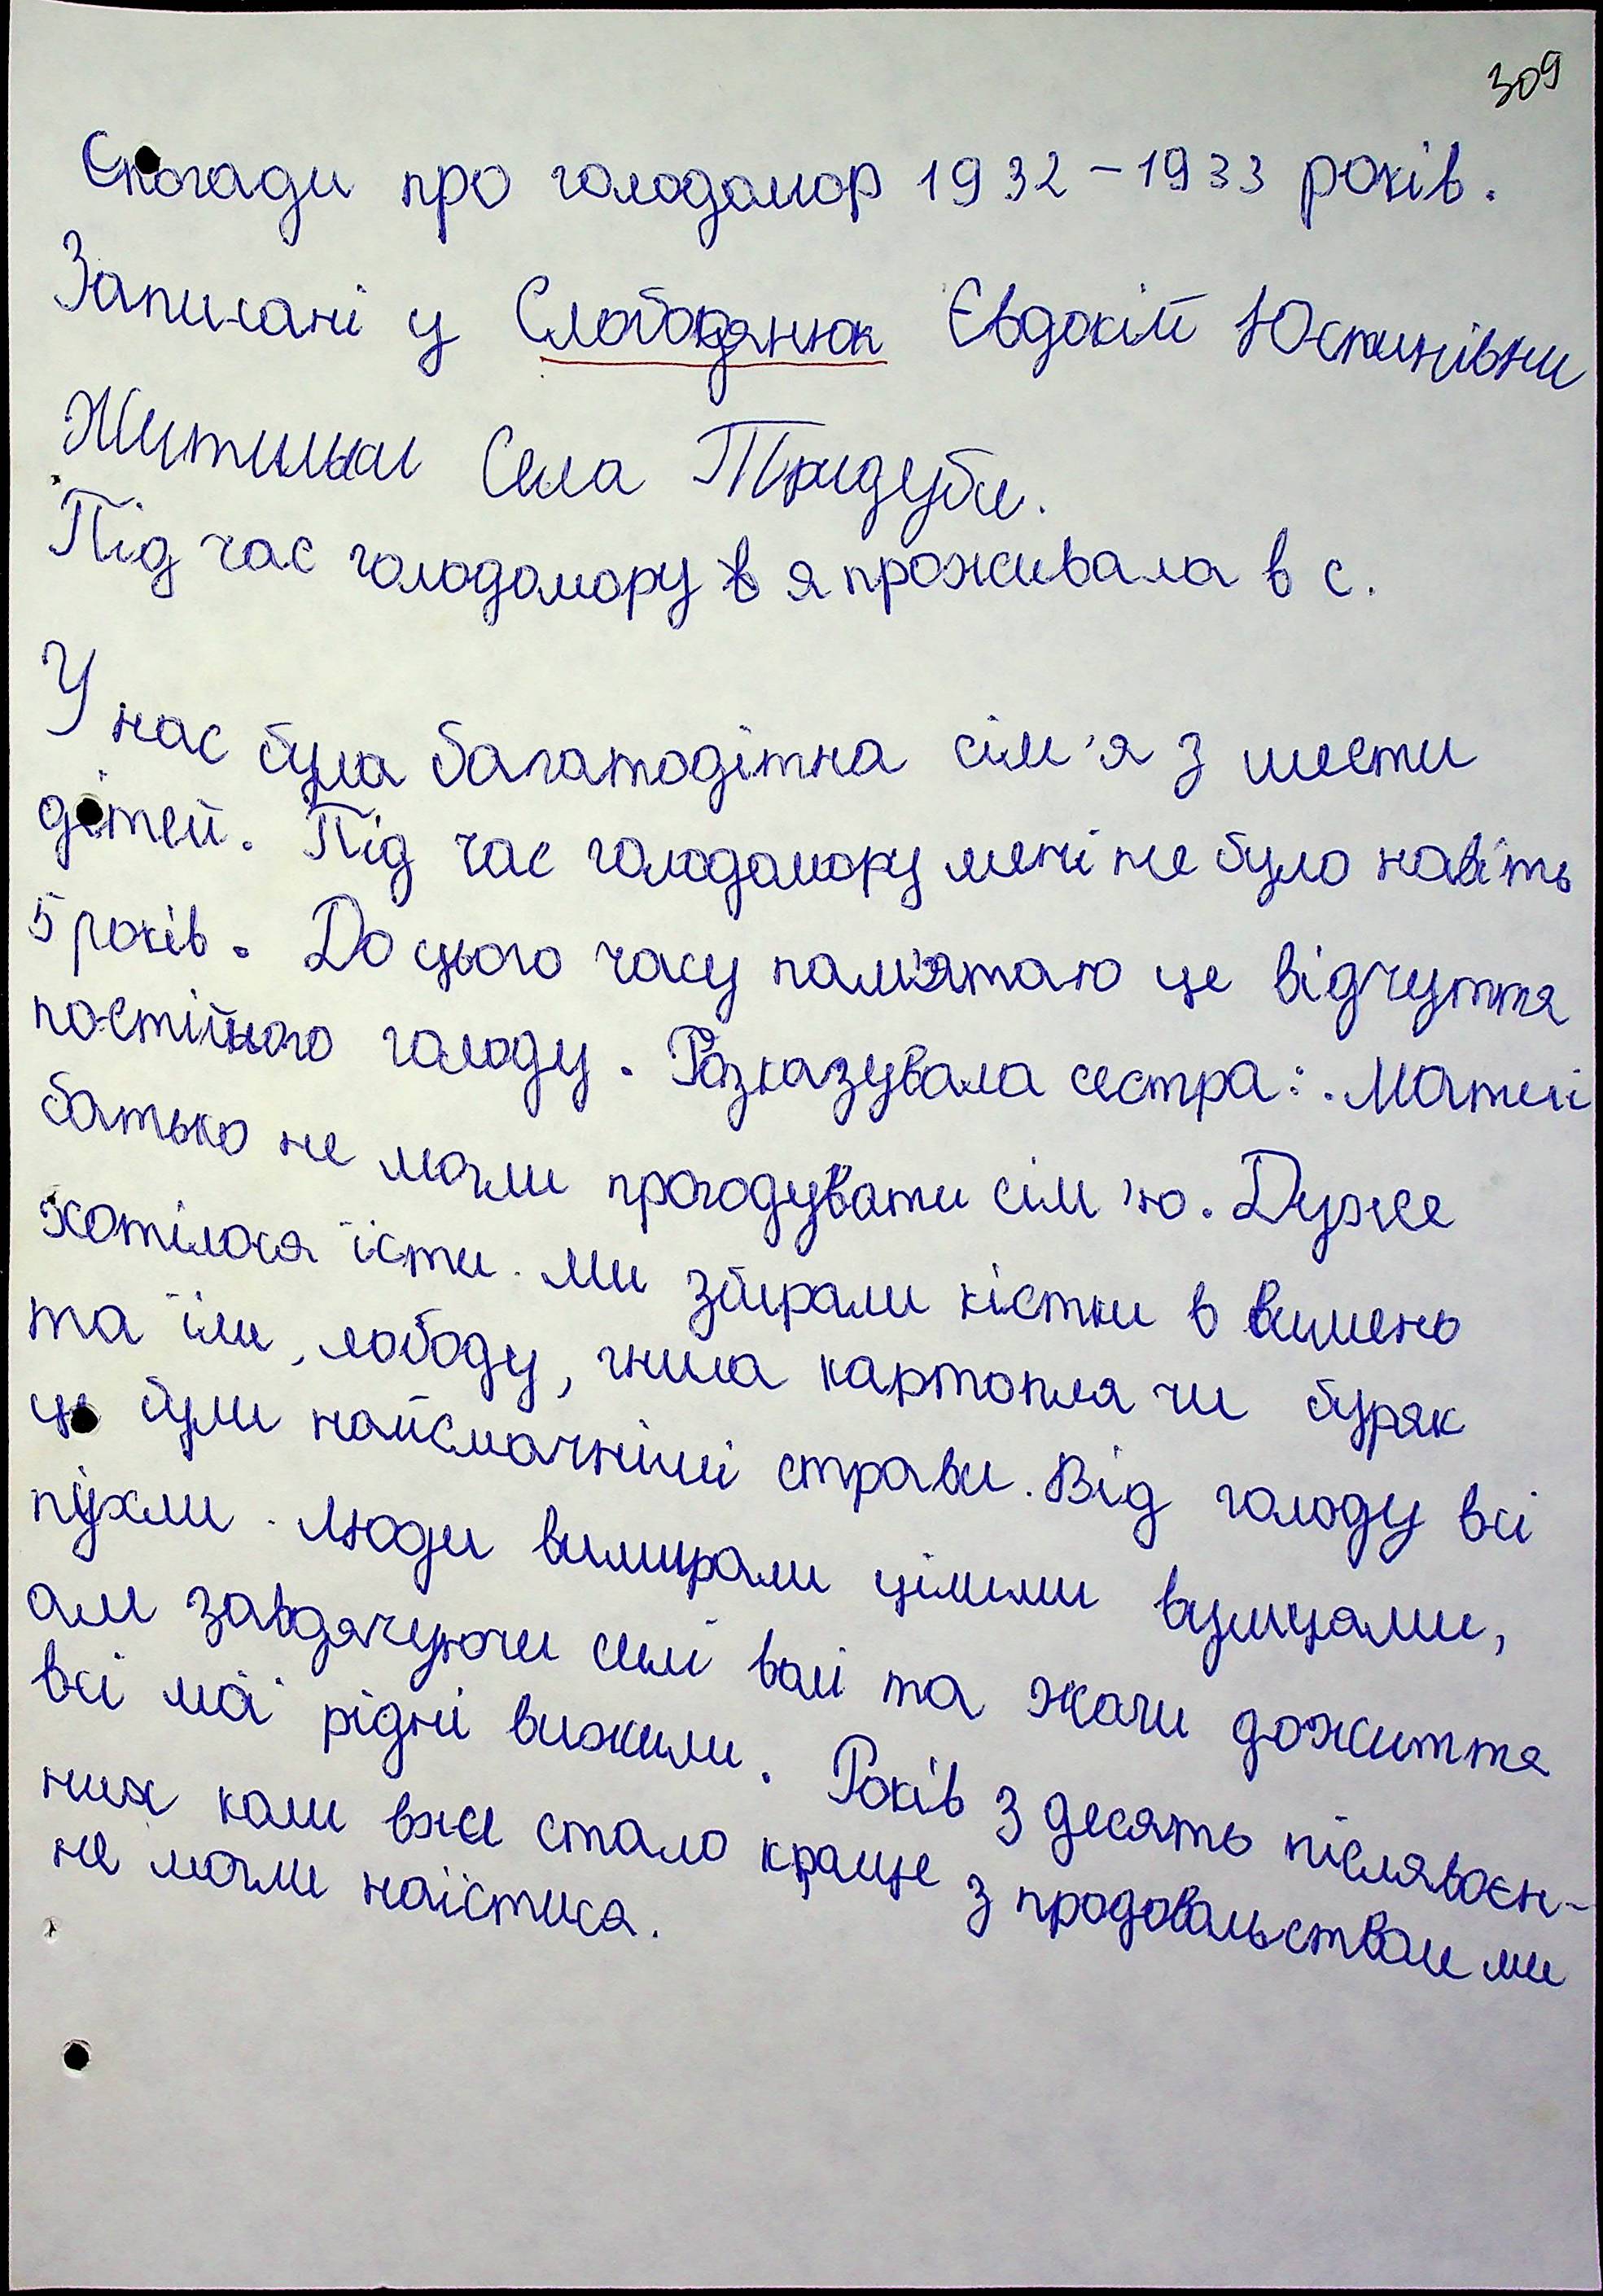 309
Спогади про голодомор 1932-1933 років.
Записані у Слободянюк Євдокій Юстинівни
Жительки Села Тридуби.
Під час голодомору в я проживала в с.
У нас була багатодітна сім'я з шести
дітей. Під час голодомору мені не було навіть
5 років. До цього часу пам'ятаю це відчуття
постійного голоду. Розказувала сестра: . Мати і
батько не могли прогодувати сім'ю. Дуже
хотілося їсти. Ми збирали кістки в вишень
та їли, лободу, гнила картопля чи буряк
це були найсмачніші страви. Від голоду всі
пухли. Люди вимирали цілими вулицями,
але завдячуючи силі волі та жаги до життя
всі мої рідні вижили. Років з десять післявоєн-
них коли вже стало краще з продовольством ми
не могли наїстися.